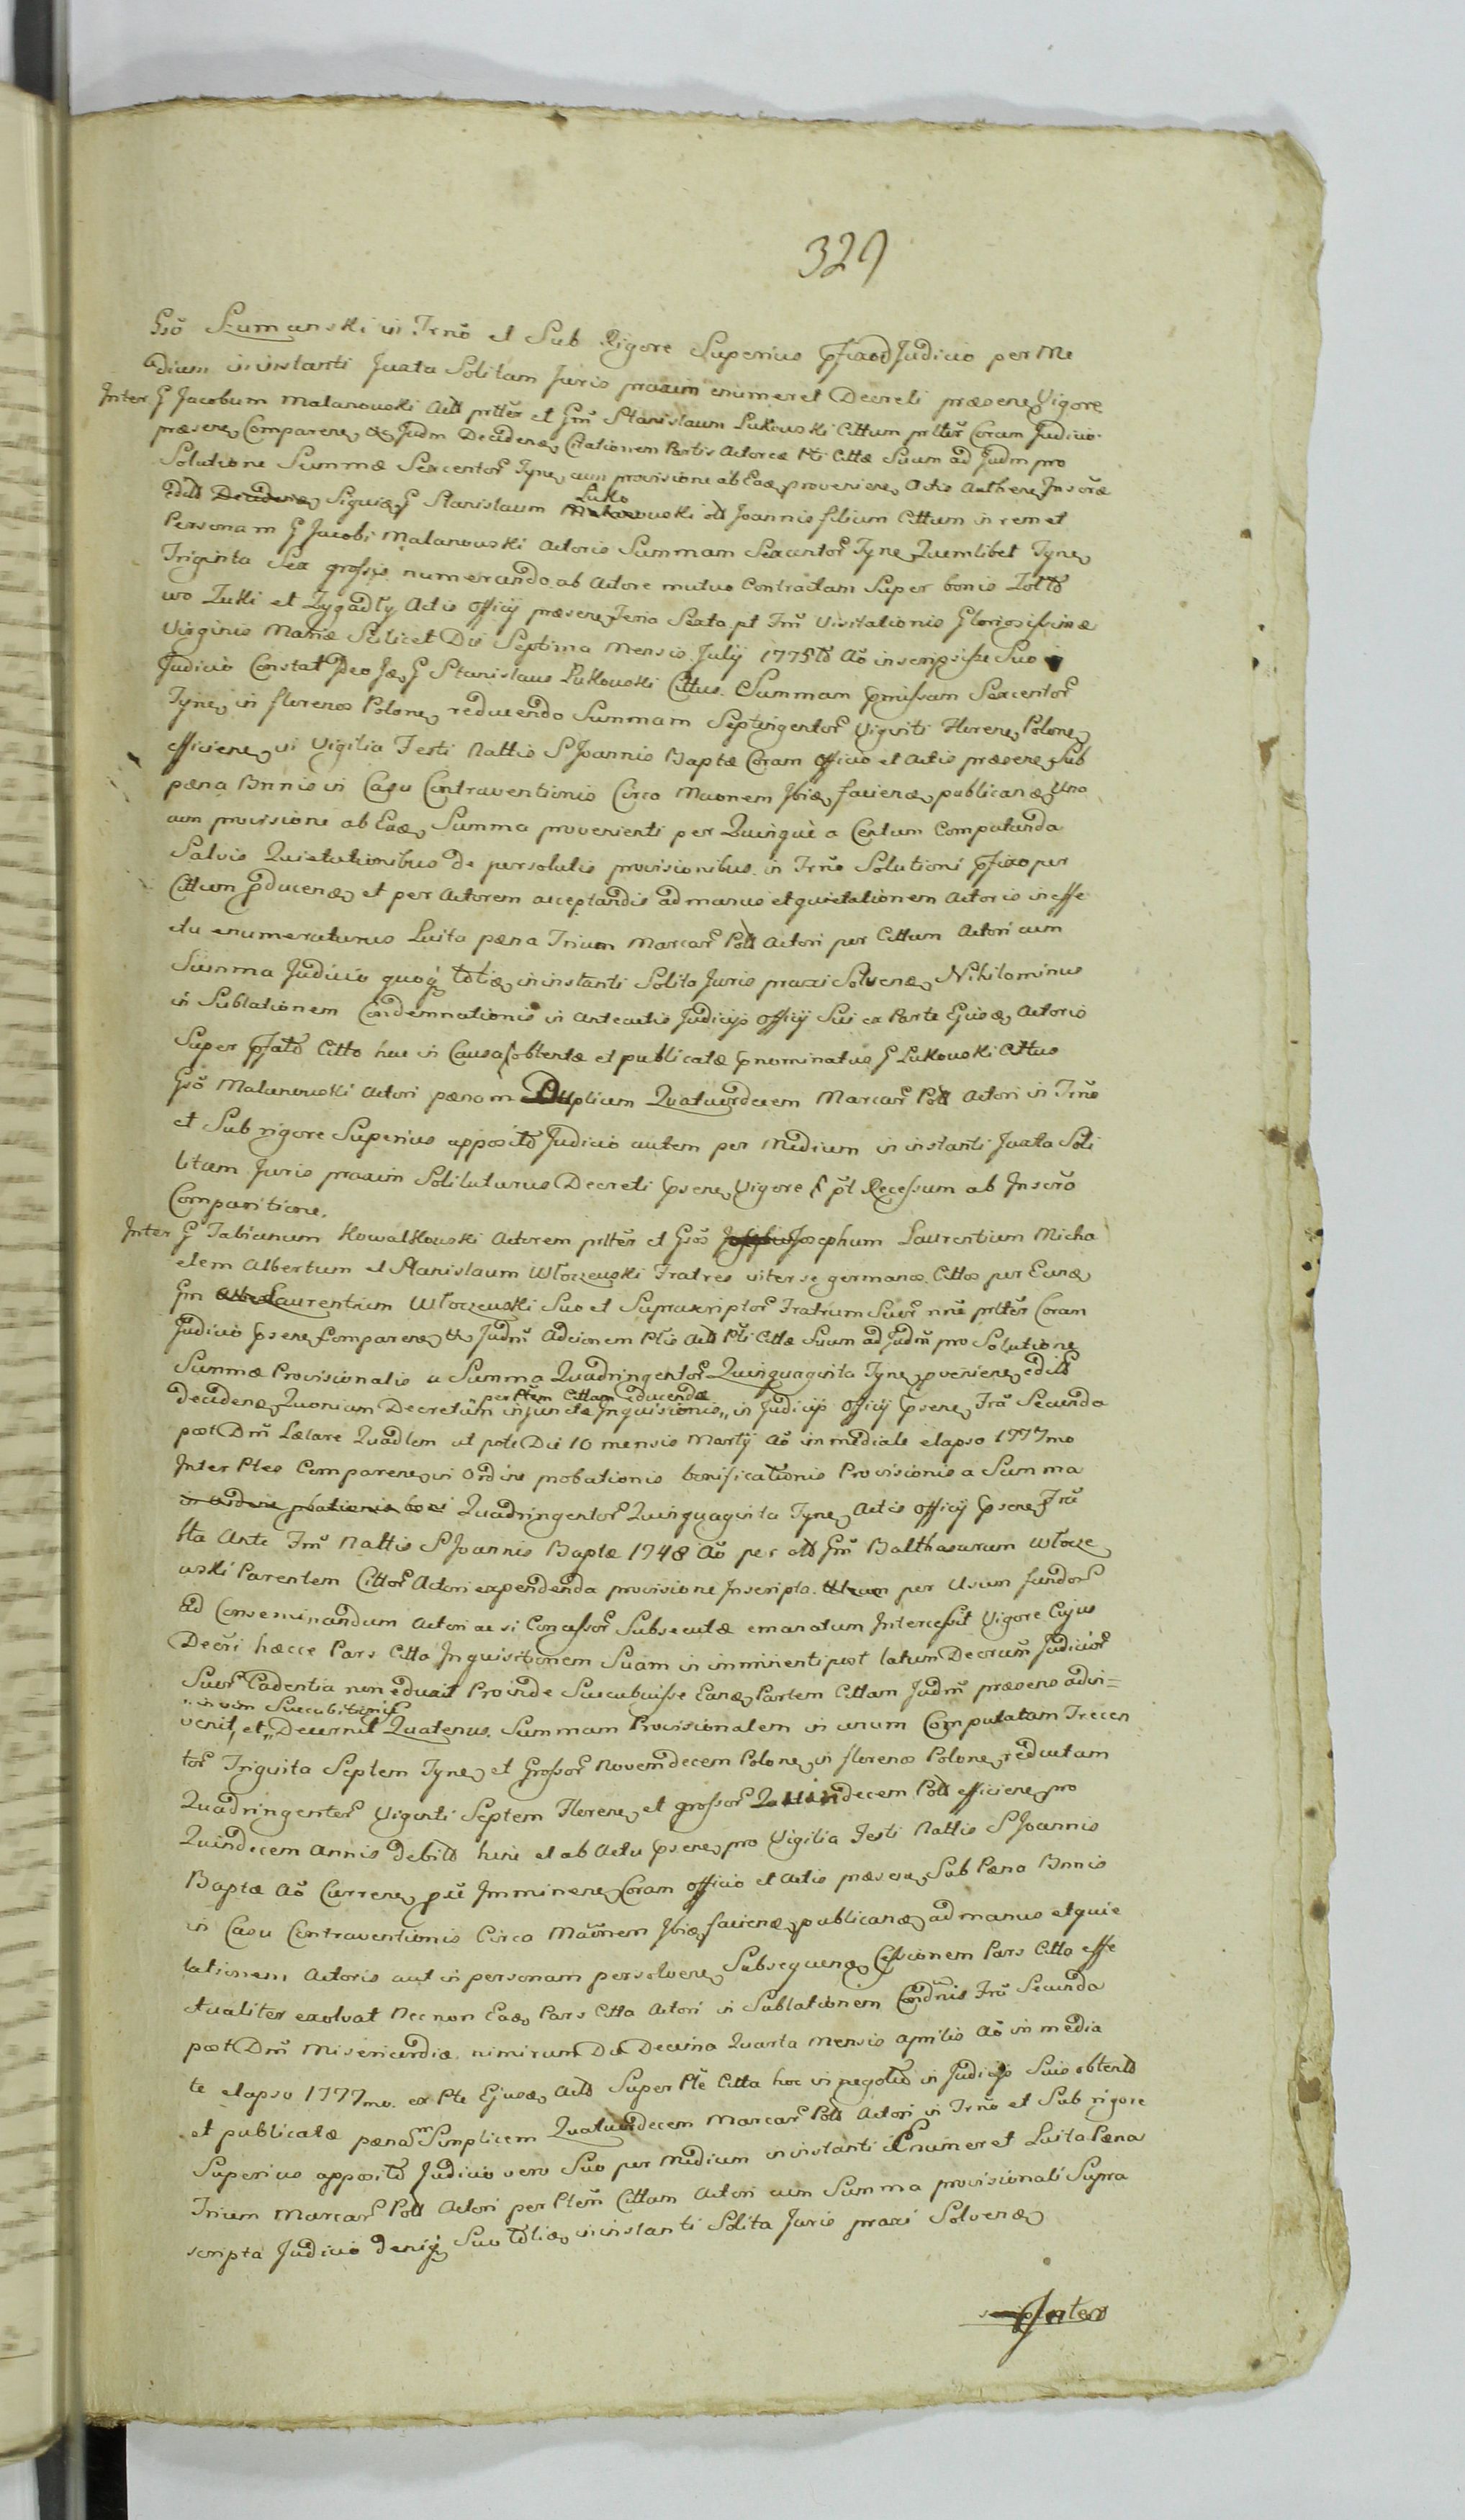 329
Gsō Szumanski in Trnō et Sub Rigore Superius pfixod Judicio per Me
dium in instanti Juxta Solitam Juris praxim enumeret Decreti præsenꝫ Vigore
Inter G Jacobum Malanowski Actt prltēr et Gm̄ Stanislaum Lukowski Cittum prltēr Coram Judicio
præsenꝫ Comparenꝫ Judm Decidendꝫ Citationem Partis Actoreæ Pti Cittæ Suum ad Judm pro
Solutione Summæ Sexcentor Tynꝫ cum provisione ab Eadꝫ provenienꝫ Actis Authenꝫ Inscræ
editt Decidendꝫ Siquidꝫ G Stanislaum Luko Malanowski olt Joannis filium Cittum in rem et
Personam G Jacobi Malanowski Actoris Summam Sexcentor Tynꝫ Quemlibet Tynꝫ
Triginta Sex grossis numerando ab Actore mutuo Contractam Super bonis Zolto
wo Zukli et Zygadly Actis Officij præsenꝫ Feria Sexta pt Fm̄ Visitationis Gloriosissimæ
Virginis Mariæ Scilicet Die Septima Mensis Julij 1775tō Aō inscripsisse Suo
Judicio Constat Ideo Idꝫ G Stanislaus Lukowski Cittus Summam pmissam Sexcentor
Tynꝫ in florenos Polonꝫ reducendo Summam Septingentor Viginti Florenꝫ Polonꝫ
efficienꝫ in Vigilia Festi Nattis S Joannis Baptæ Coram Officio et Actis præsenꝫ Sub
pæna Bnnis in Casu Contraventionis Circa Mconem Ibidꝫ faciendꝫ publicandꝫ Una
cum provisione ab Eadꝫ Summa provenienti per Quinque a Centum Computanda
Salvis Quietationibus de persolutis provisionibus in Trnō Solutioni pfixo per
Cittum pducendꝫ et per Actorem acceptandis ad manus et quietationem Actoris in effe
ctu enumeraturus Luita pæna Trium Marcar Poll Actori per Cittum Actori cum
Summa Judicio quoqꝫ totiedꝫ in instanti Solita Juris praxi Solvendꝫ Nihilominus
in Sublationem Condemnationis in Anteactis Judicijs Officij Sui ex Parte Ejusdꝫ Actoris
Super pfatō Citto hac in Causa obtentæ et publicatæ pnominatus G Lukowski Cittus
Gsō Malanowski Actori pænam Duplicem Quatuordecem Marcar Poll Actori in Trnō
et Sub rigore Superius appositō Judicio autem per Medium in instanti Juxta Soli
litam Juris praxim Solituturus Decreti psenꝫ Vigore pt Recessum ab Inscrō
Comparitione.
Inter G Fabianum Kowalkowski Actorem prltēr et Gsos Josephum Laurentium Micha
elem Albertum et Stanislaum Wloczewski Fratres inter se germanos Cittos per Eundꝫ
Gm Laurentium Wloczewski Suo et Suprascriptor Fratrum Suor nnē prltēr Coram
Judicio psenꝫ Comparenꝫ Judm Adcionem Ptis Actt Pti Cittæ Suum ad Judm pro Solutione
Summæ Provisionalis a Summa Quadringentor Quinquaginta Tynꝫ pvenienꝫ editt
decidendꝫ Quonium Decretum injunctæ per Ptem Cittam educendæ Inquisitionis in Judicijs Officij psenꝫ Fra Secunda
post Dm̄ Lætare Quadlem ut pote Die 10 mensis Martij Aō immediate elapso 1777mo
Inter Ptes Comparenꝫ in Ordine probationis bonificationis Provisionis a Summa
in ordine pbationis boni Quadringentor Quinquaginta Tynꝫ Actis Officij psenꝫ Fra
Ita Ante Fm̄ Nattis S Joannis Baptæ 1748 Aō per olt Gm̄ Balthasarum Wlocze
wski Parentem Cittor Actori expendenda provisione Inscripta per Usum fundor
Ad Conseminandum Actori ac si Concessor Subsecutæ emanatum Intercessit Vigore Cujus
Decri hæcce Pars Citta Inquisitionem Suam in imminenti post latum Decrum Judicior
Suor Cadentia non eduxit Proinde Succubuisse Eandꝫ Partem Cittam Judm præsens adin=
venit, et in vim Succubitionis Decernit Quatenus Summam Provisionalem in unum Computatam Trecen
tor Triginta Septem Tynꝫ et Grossor Novemdecem Polonꝫ in florenos Polonꝫ reductam
Quadringentor Viginti Septem Florenꝫ et grossor Quindecem Poll efficienꝫ pro
Quindecem Annis debitt hinc et ab Actu psenꝫ pro Vigilia Festi Nattis S Joannis
Baptæ Aō Currenꝫ Imminenꝫ Coram Officio et Actis præsenꝫ Sub Pæna Bnnis
in Casu Contraventionis Circa Maōnem Ibidꝫ faciendꝫ publicandꝫ ad manus et quie
tationem Actoris aut in personam persolvenꝫ Subsequendꝫ Cessionem Pars Citta effe
ctualiter exolvat Nec non Eadꝫ Pars Citta Actori in Sublationem Condnis Fra Secunda
post Dm̄ Misericordiæ nimirum Die Decima Quarta Mensis Aprilis Aō in media
te elapso 1777mo. ex Pte Ejusdꝫ Actt Super Pte Citta hoc in negotiō in Judicijs Suis obtentō
et publicatæ pænam Simplicem Quatuordecem Marcar Poll Actori in Trnō et Sub rigore
Superius appositō Judicio vero Suo per Medium in instanti Enumeret Luita Pæna
Trium Marcar Poll Actori per Ptem Cittam Actori cum Summa provisionali Supra
scripta Judicio deniqꝫ Suo totiedꝫ in instanti Solita Juris praxi Solvendꝫ
Inter